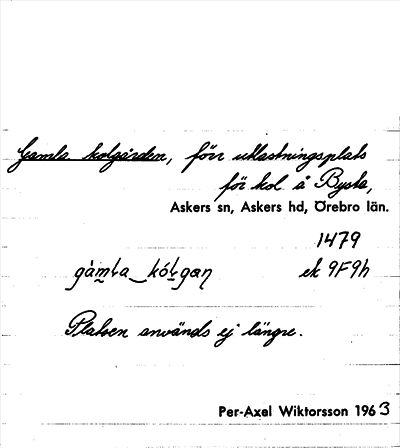 Gamla kolgården, förr utlastningsplats
för kol å Bysta,
Askers sn, Askers hd, Örebro län.
1479
gàm̰ła‿kóḷgaɳ ek 9F9h
Platsen används ej längre.
Per-Axel Wiktorsson 1963